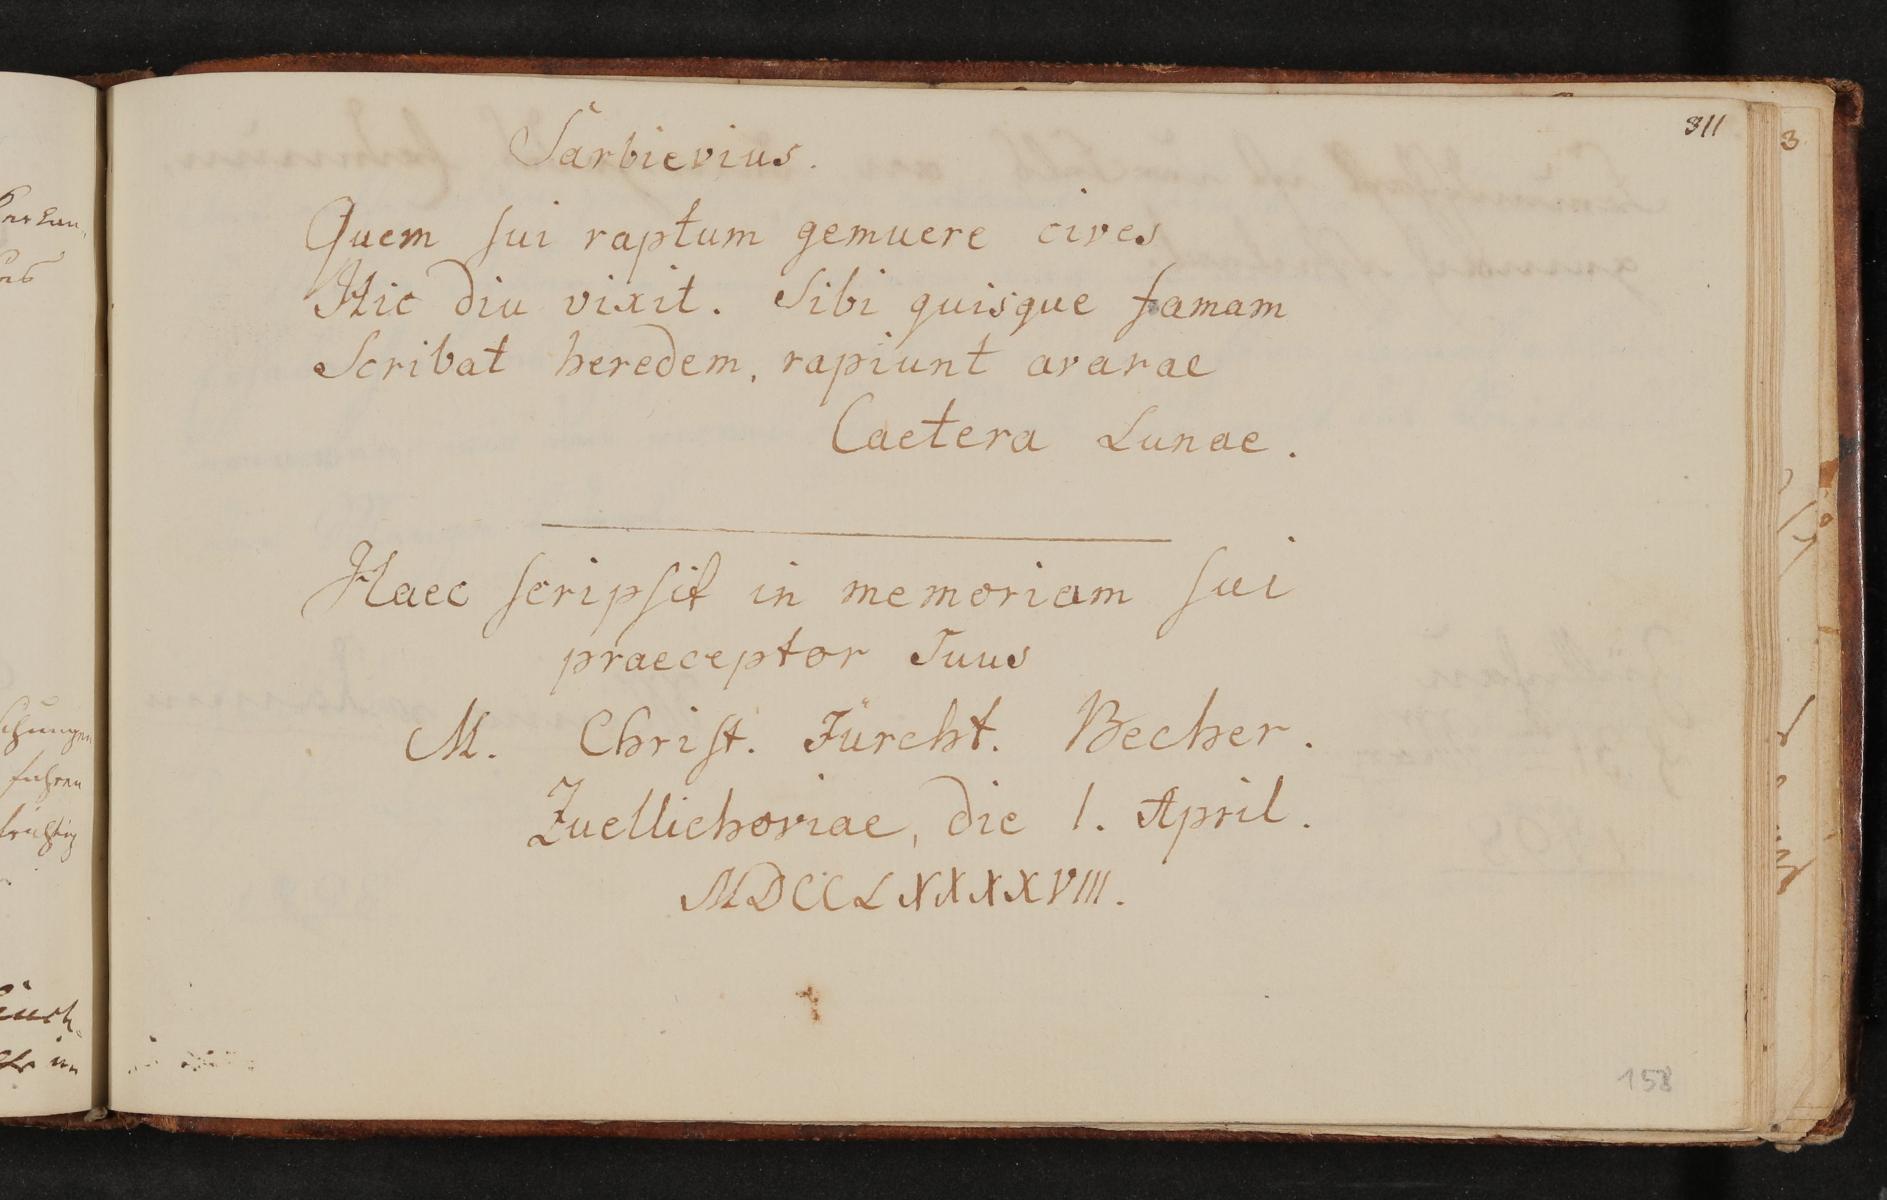 311
Sarbievius.
Quem sui raptum gemuere cives
Hic diu vixit. Sibi quisque famam
Scribat heredem, rapiunt avarae
Caetera Lunae.
Haec scripsit in memoriam sui
praeceptor Tuus
M. Christ. Fürcht. Becher.
Zuellichoviae, die 1. April.
MDCCLXXXXVIII.
158